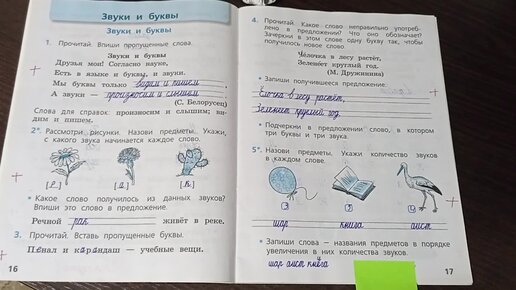 Звуки и буквы
Звуки и буквы
1. Прочитай. Впиши пропущенные слова.
Звуки и буквы
Друзья мои! Согласно науке,
Есть в языке и буквы, и звуки.
Мы буквы только видим и пишем,
А звуки — произносим и слышим
(С. Белорусец)
Слова для справок: произносим и слышим; ви-
дим и пишем.
2*. Рассмотри рисунки. Назови предметы. Укажи,
с какого звука начинается каждое слово.
[Р] [А] [К]
• Какое слово получилось из данных звуков?
Впиши это слово в предложение.
Речной рак живёт в реке.
3. Прочитай. Вставь пропущенные буквы.
Пенал и карандаш — учебные вещи.
16
4. Прочитай. Какое слово неправильно употреб-
лено в предложении? Что оно обозначает?
Зачеркни в этом слове одну букву так, чтобы
получилось новое слово.
Чёлочка в лесу растёт,
Зеленеёт круглый год.
(М. Дружинина)
• Запиши получившееся предложение.
Ёлочка в лесу растёт,
Зеленеет круглый год.
• Подчеркни в предложении слово, в котором
три буквы и три звука.
5*. Назови предметы. Укажи количество звуков
в каждом слове.
[3] [5] [4]
шар книга аист
• Запиши слова — названия предметов в порядке
увеличения в них количества звуков.
шар аист книга
17